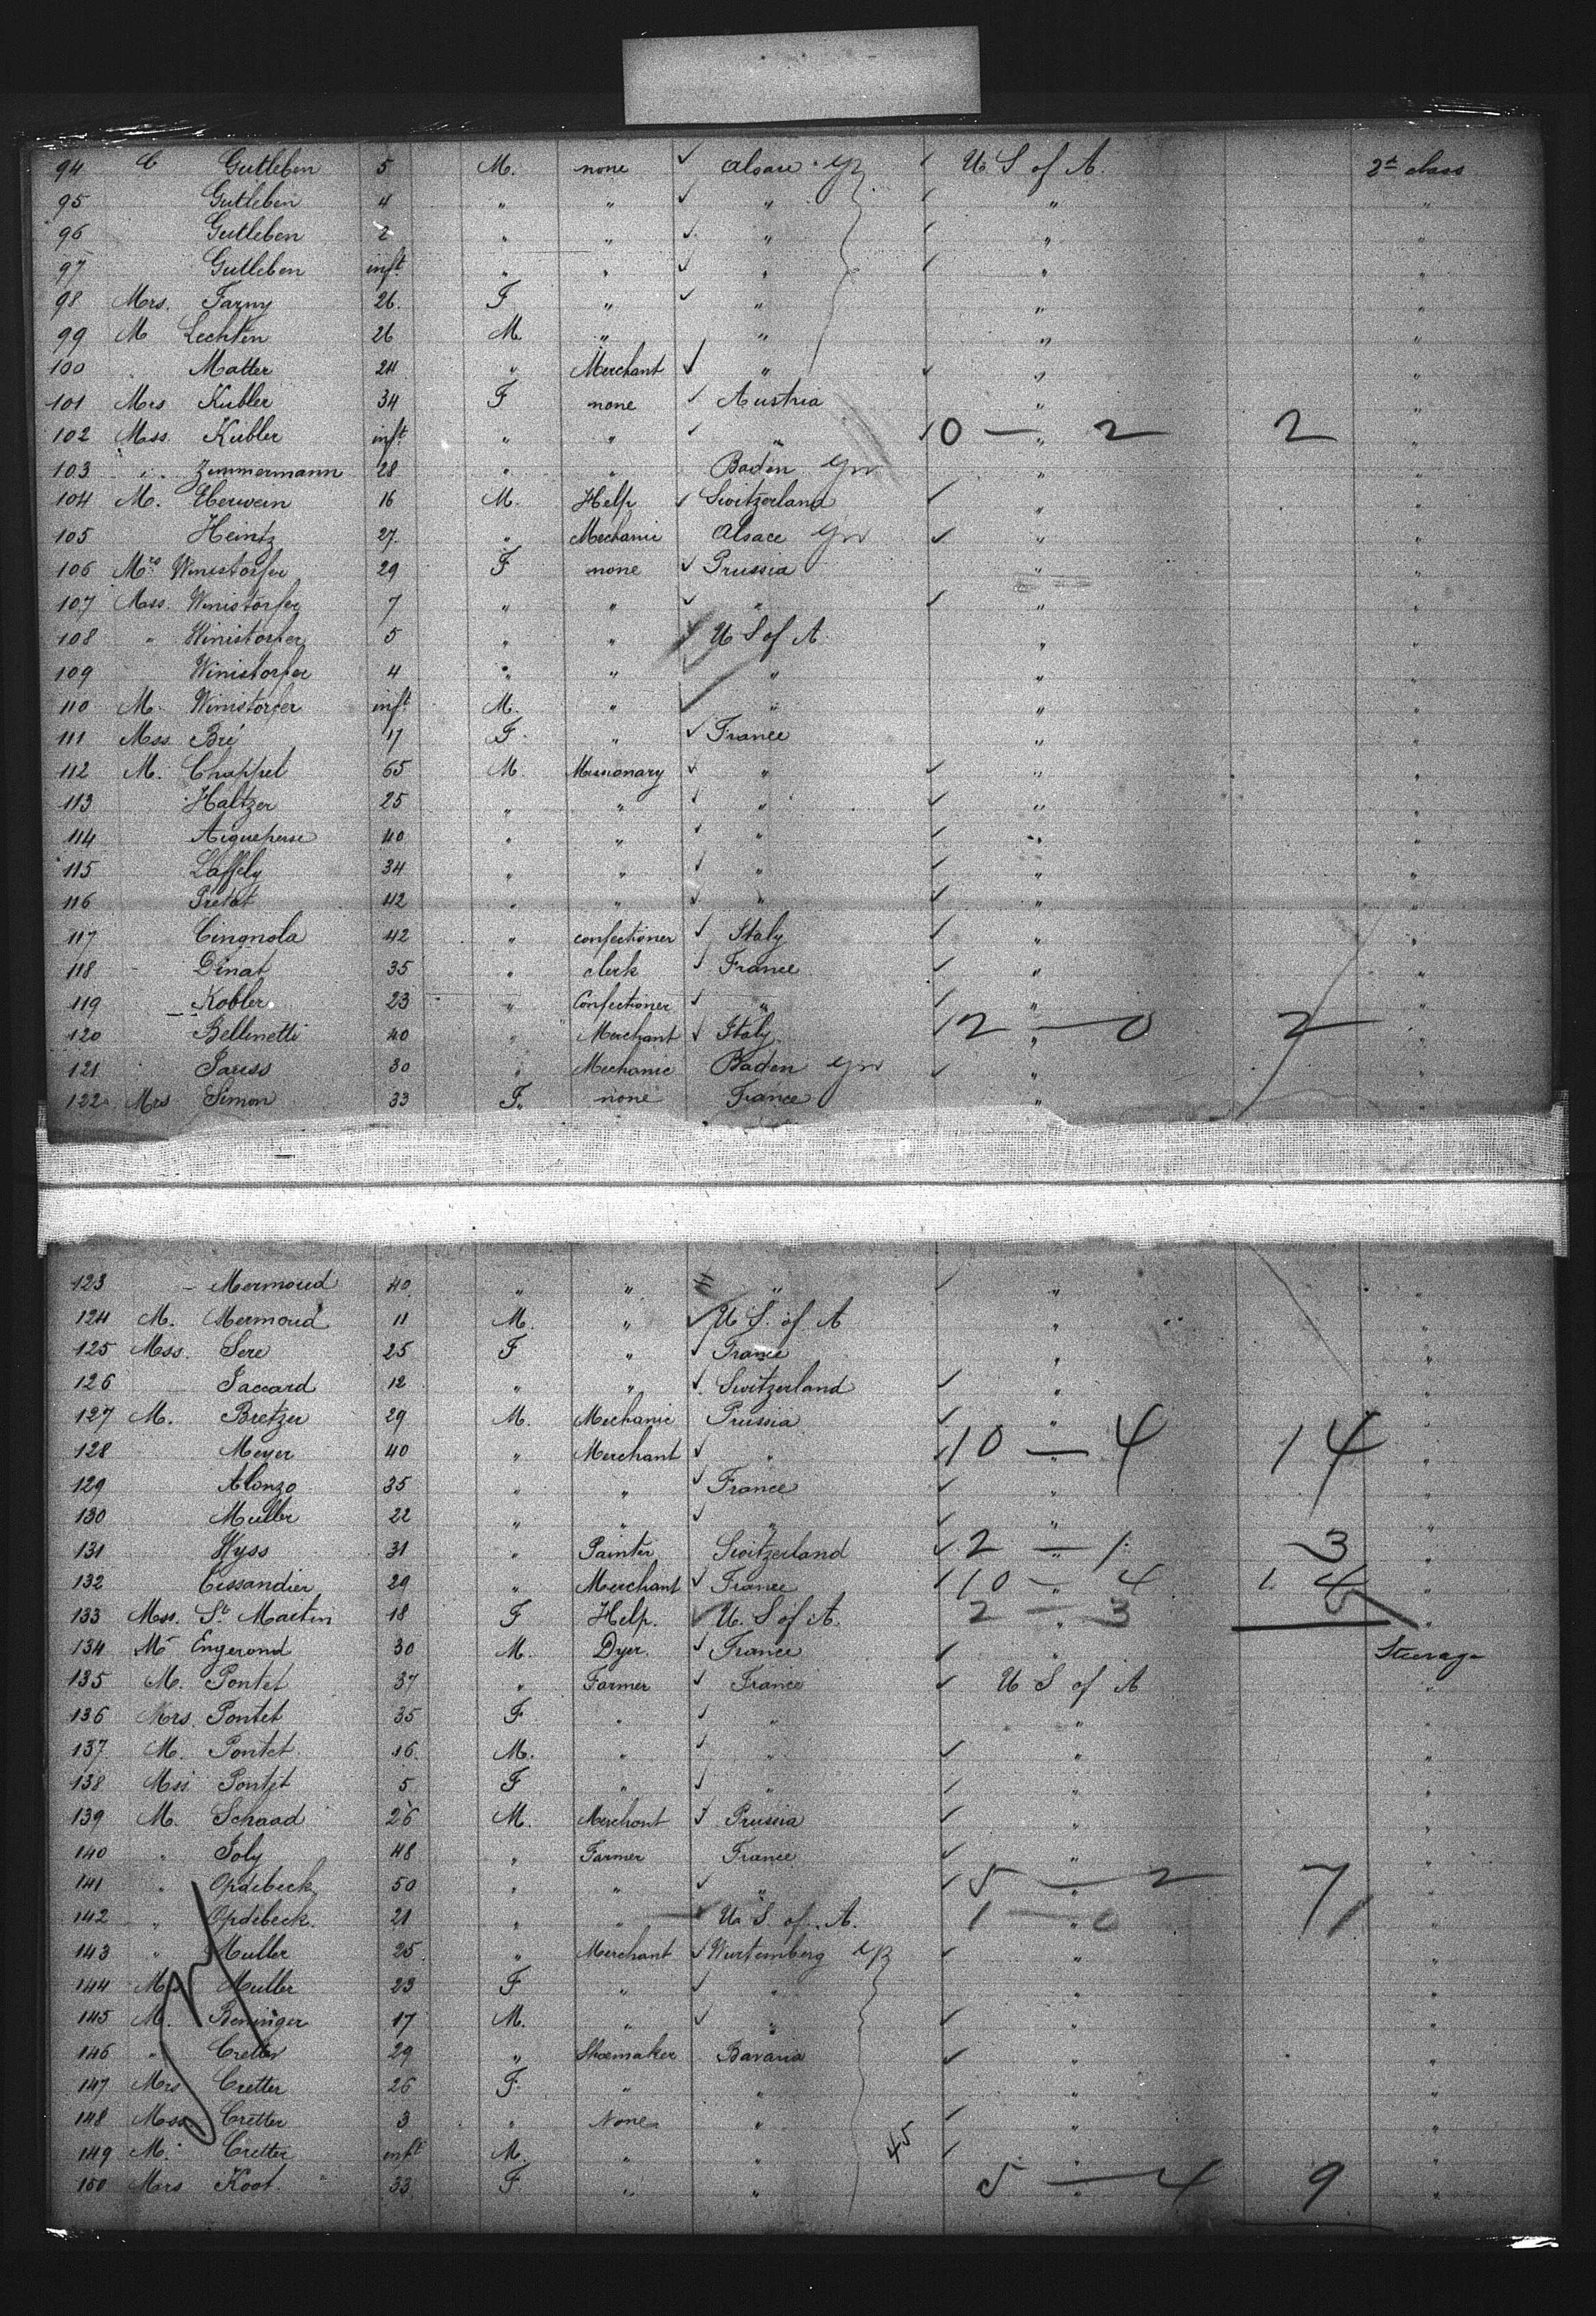 94 C Gutleben 5 M. none ✓ Alsace Gr ✓ U S of A. 2d class
95 Gutleben 4 " " ✓ " ✓ " "
96 Gutleben 2 " " ✓ " ✓ " "
97 Gutleben inft " " ✓ " ✓ " "
98 Mrs. Farny 26. F " ✓ " " "
99 M Lechten 26 M. " " " "
100 Matter 24 " Merchant ✓ " ✓ " "
101 Mrs Kubler 34 F none ✓ Austria " "
102 Mss. Kubler inft " " ✓ " ✓ 0 — 2 2 "
103 " Zimmermann 28 " " Baden Gr " "
104 M. Eberwein 16 M. Help ✓ Switzerland ✓ " "
105 Heintz 27. " Mechanic Alsace Gr ✓ " "
106 Mrs Winistorfer 29 F none ✓ Prussia " "
107 Mss. Winistorfer 7 " " ✓ " ✓ " "
108 " Winistorfer 5 " " ✓ U S of A. " "
109 Winistorfer 4 " " ✓ " " "
110 M. Winistorfer inft M. " ✓ " " "
111 Mss. Bré 17 F. " ✓ France " "
112 M. Chappel 65 M. Missionary ✓ " ✓ " "
113 Haltzer 25 " " ✓ " ✓ " "
114 Aigueperse 40 " " ✓ " ✓ " "
115 Laffely 34 " " ✓ " ✓ " "
116 Pretot 42 " " ✓ " ✓ " "
117 Cingnola 42 " confectioner ✓ Italy ✓ " "
118 Dinat 35 " clerk ✓ France ✓ " "
119 Kobler 23 " Confectioner ✓ " ✓ " "
120 Bellinetti 40 " Merchant ✓ Italy ✓ 2 — 0 2 "
121 Jauss 30 " Mechanic Baden Gr ✓ " "
122 Mrs Simon 33 F. none France " "
123 Mermoud 40 " " " ✓ " "
124 M. Mermoud 11 M. " ✓ U S. of A " "
125 Mss. Sere 25 F " ✓ France " "
126 Jaccard 12 " " ✓ Switzerland ✓ " "
127 M. Bretzer 29 M. Mechanic Prussia ✓ " "
128 Meyer 40 " Merchant ✓ " ✓ 10 — 4 14 "
129 Alonzo 35 " " ✓ France ✓ " "
130 Muller 22 " " ✓ " ✓ " "
131 Wyss 31 " Painter Switzerland ✓ 2 — 1 3 "
132 Cissandier 29 " Merchant ✓ France ✓ 10 — 4 1 4 "
133 Mss. St Martin 18 F Help. ✓ U. S of A. 2 — 3 5 "
134 Mr Engerond 30 M. Dyer ✓ France ✓ " Steerage
135 M. Pontet 37 " Farmer ✓ France ✓ U S of A "
136 Mrs. Pontet 35 F " ✓ " " "
137 M. Pontet 16. M. " ✓ " ✓ " "
138 Mss Pontet 5 F " ✓ " ✓ " "
139 M. Schaad 26 M. Merchant ✓ Prussia ✓ " "
140 " Joly 48 " Farmer France ✓ " "
141 " Opdebeck 50 " " ✓ " ✓ 5 — 2 7 "
142 " Opdebeck. 21 " " ✓ U. S. of A. 1 — 0 1 "
143 " Muller 25 " Merchant ✓ Wurtemberg Gr ✓ " "
144 Mrs Muller 23 F " ✓ " " "
145 M. Beninger 17 M. " ✓ " ✓ " "
146 " Cretter 29 " Shoemaker Bavaria ✓ " "
147 Mrs Cretter 26 F. " " " "
148 Mss. Cretter 3 " None " ✓ " "
149 M. Cretter inft M. " " 45 ✓ " "
150 Mrs Koot 33 F " " 5 — 4 9 "